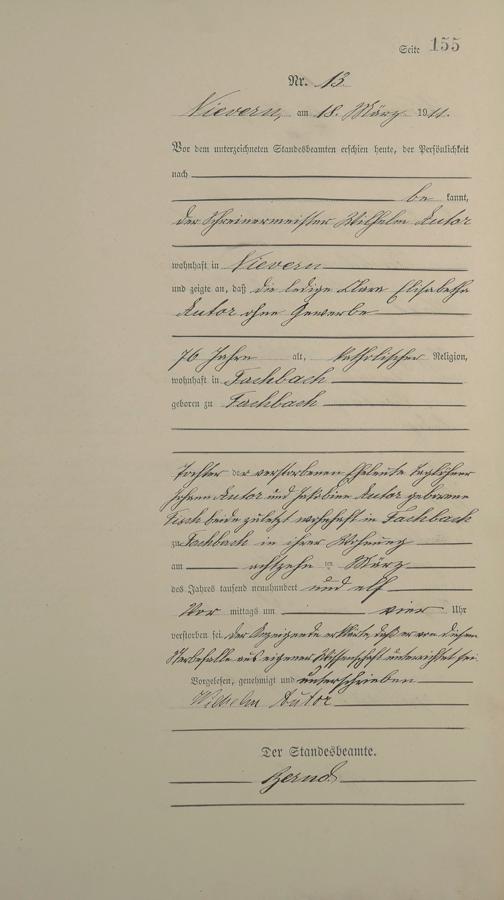 Seite 155
Nr. 13.
Nievern, am 18. März 1911.
Vor dem unterzeichneten Standesbeamten erschien heute, der Persönlichkeit
nach
be kannt,
der Schreinermeister Wilhelm Autor
wohnhaft in Nievern
und zeigte an, daß die ledige Clara Elisabetha
Autor ohne Gewerbe
76 Jahre alt, katholischer Religion,
wohnhaft in Fachbach
geboren zu Fachbach
Tochter der verstorbenen Eheleute Taglöhner
Johann Autor und Jakobine Autor geborene
beide zuletzt wohnhaft in Fachbach
zu Fachbach in ihrer Wohnung
am achtzehn ten März
des Jahres tausend neunhundert und elf
Vor mittags um vier Uhr
verstorben sei. Der Anzeigende erklärte, daß er von diesem
Sterbefalle aus eigener Wissenschaft unterrichtet sei.
Vorgelesen, genehmigt und unterschrieben
Wilhelm Autor
Der Standesbeamte.